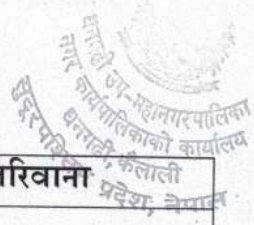 धनगढी उप-महानगरपालिका
नगर कार्यपालिकाको कार्यालय
धनगढी, कैलाली
सुदूरपश्चिम प्रदेश, नेपाल
रिवाना